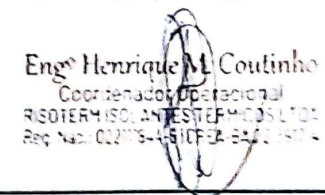 Engº Henrique M. Coutinho
Coordenador Operacional
RISOTERM ISOLANTES TÉRMICOS LTDA
Reg. Nac.